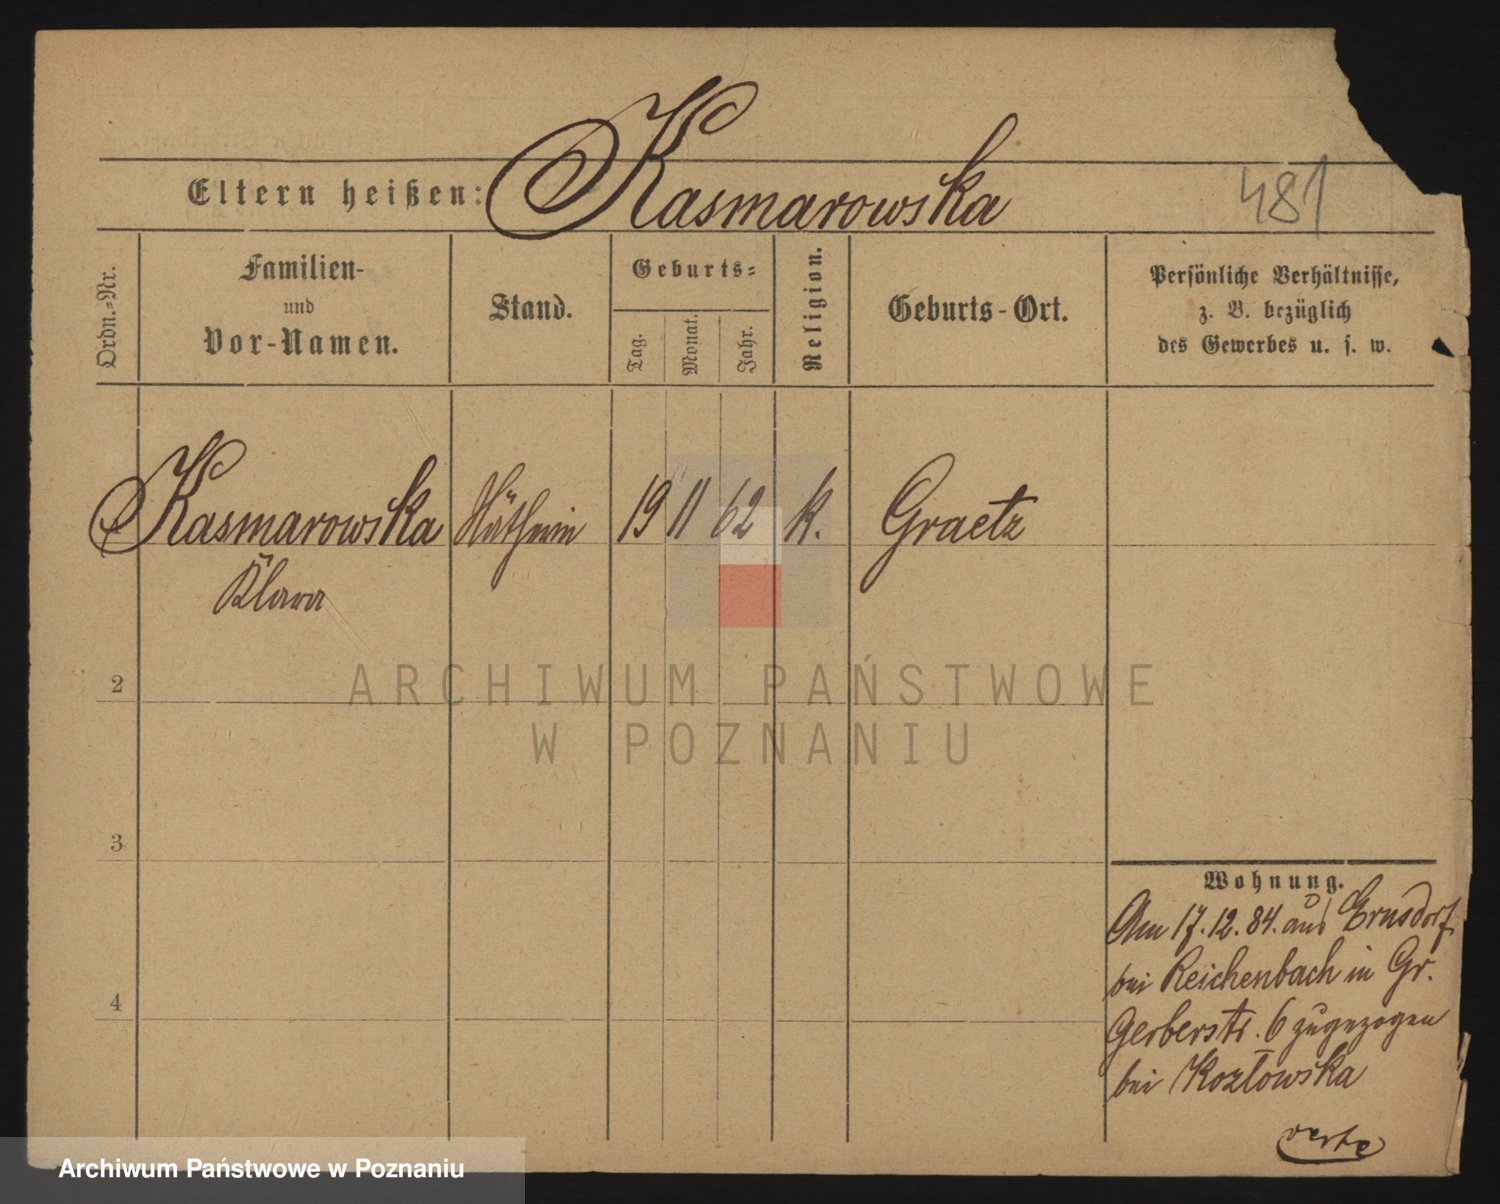 Kasmarowska
Eltern heißen:
481
Ordn.-Nr.
Familien-
und
Vor-Namen.
Stand.
Geburts-
Tag.
Monat.
Jahr.
Religion.
Geburts-Ort.
Persönliche Verhältnisse,
z. B. bezüglich
des Gewerbes u. s. w.
Kasmarowska
Nätherin
19
11
62
k.
Graetz
Klara
2
ARCHIWUM PAŃSTWOWE
W POZNANIU
3
Wohnung.
Am 17.12.84. aus Ernsdorf
bei Reichenbach in Gr.
4
Gerberstr. 6 zugezogen
bei Kozłowska
verte
Archiwum Państwowe w Poznaniu